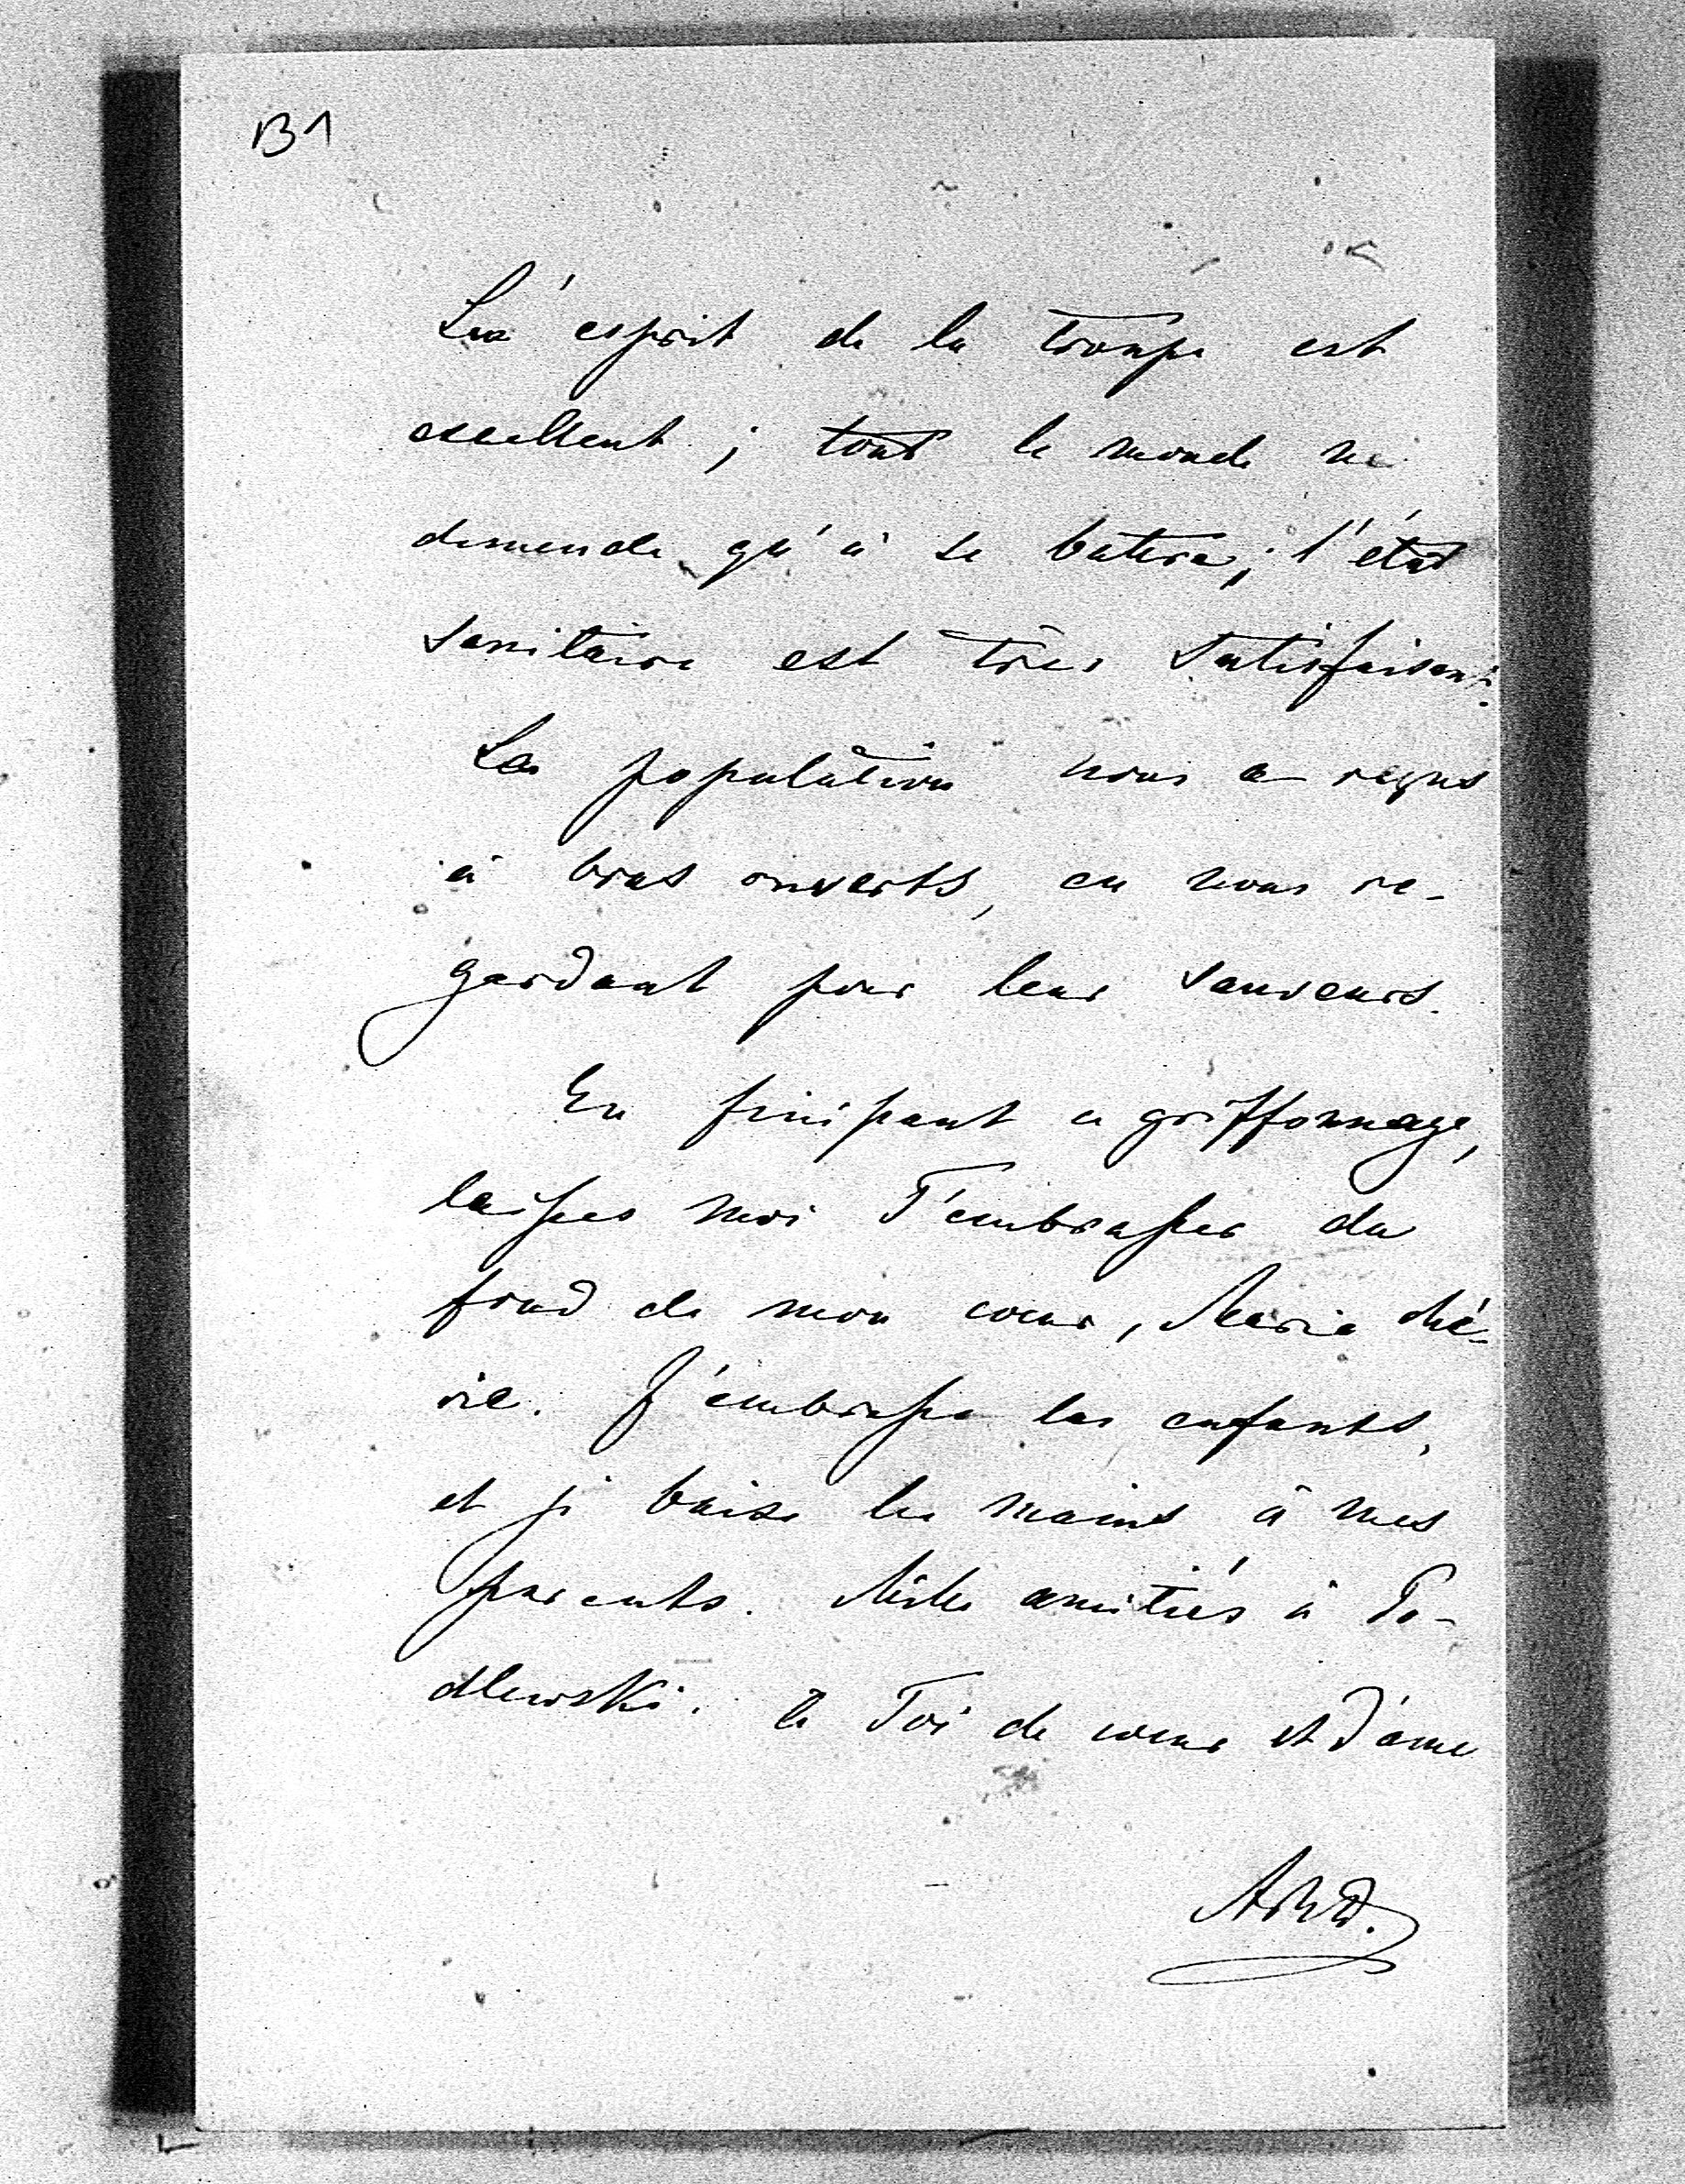 B1
L'esprit de la troupe est
excellent ; tout le monde ne
demende qu'à se batere ; l'état
sanitaire est très satisfaisant.
La population nous a reçus
à bras ouverts, en nous re-
gardant pour leur sauveurs.
En finissant ce griffonnage,
laisses moi T'embrasser du
fond de mon coeur, Marie ché-
rie. J'embrasse les enfants,
et je baise les mains à mes
parents. Mille amitiés à Po-
dlewski. à Toi de coeur et d'âme